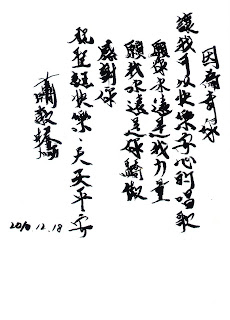 因為有你
讓我可以快樂安心的唱歌
願你永遠是我力量
願我永遠是你驕傲
感謝你
祝聖誕快樂·天天平安
蕭敬騰
2010.12.18